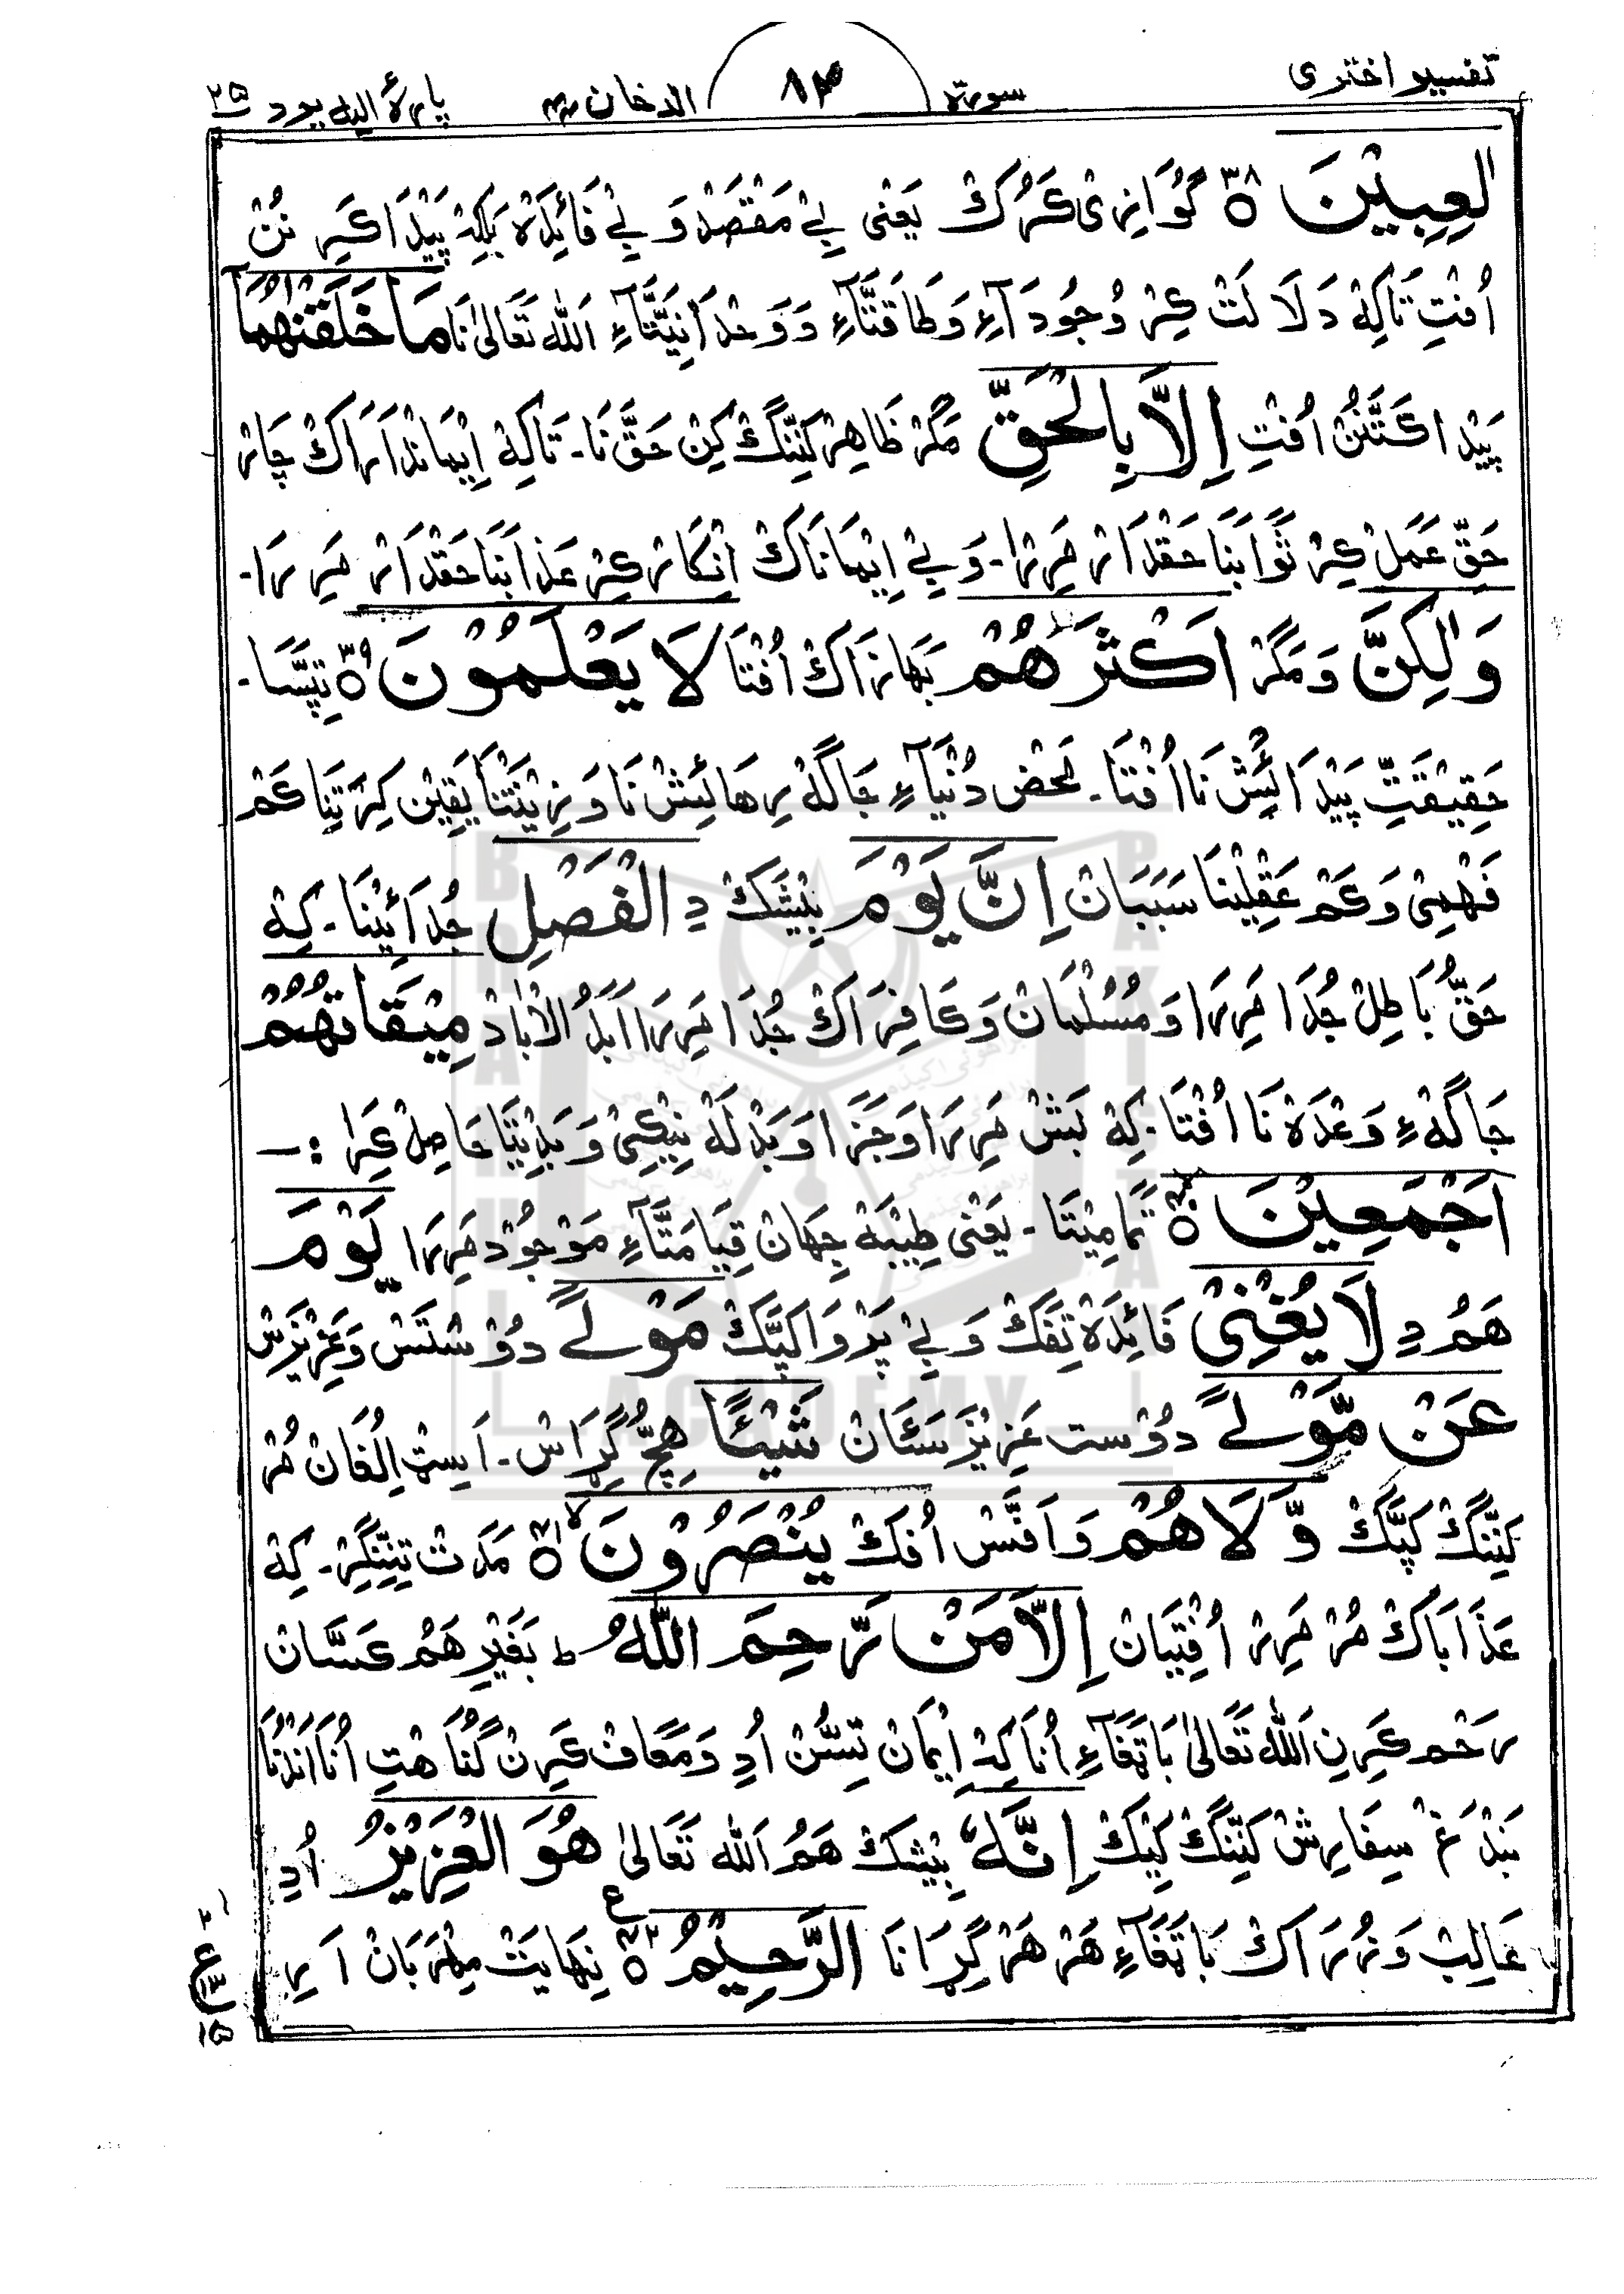 تفسیر اختری سورة ۸۳ الدخان ۴۴ پارۀ الیه یرد ۲۵
لٰعِبِیْنَ ۳۸ گوَازِی کَرُکْ یَعْنِی بِے مَقْصَدْ وَ بِے فَائِدَہْ بَلْکِہْ پَیْدَا کَرِنْ نَنْ
اُفْتِ تَاکِہْ دَلَالَتْ کِرْ وُجُودَآءِ وَ طَاقَتَّآءِ وَ وَحْدَانِیَتَّآءِ اَللہ تَعَالیٰ نَا مَا خَلَقْنٰهُمَآ
پَیْدَا کَتَّنُنْ اُفْتِ اِلَّا بِالْحَقِّ مَگَرْ ظَاهِرْ کَنِنْگْ کِنْ حَقَّ نَا۔ تَاکِہْ اِیْمَانْدَارَاکْ چَارْ
حَقِّ عَمَلْ کِرْ ثَوَابَنَا حَقْدَارْ مَرِرْ۔ وَ بِے اِیْمَانَاکْ اِنْکَارْ کِرْ عَذَابَنَا حَقْدَارْ مَرِرَا۔
وَلٰکِنَّ وَ مَگَرْ اَکْثَرَهُمْ بَهَازَاکْ اُفْتَا لَا یَعْلَمُوْنَ ۳۹ تِپَسَّا۔
حَقِیْقَتِّ پَیْدَائِشْ نَا اُفْتَا۔ مَحْض دُنْیَآءِ جَاگَہْ رِهَائِشْ نَا وَ زِیْنَتْنَا یَقِیْن کِرَ تِنَا کَمْ
فَهْمِیْ وَ کَمْ عَقْلِیْنَا سَبَبَانْ اِنَّ یَوْمَ بِیْشَکْ دِ الْفَصْلِ جُدَائِیْنَا۔ کِہْ
حَقُّ بَاطِلْ جُدَا مَرِرَا وَ مُسْلْمَانْ وَ کَافِرَاکْ جُدَا مَرِرَا اَبَدُ الْاٰبَادْ مِیْقَاتُهُمْ
جَاگَہْ ءِ وَعْدَہْ نَا اُفْتَا۔ کِہْ بَشْ مَرِرَا وَ جَزَا وَ بَدْلَہْ نِیْکِیْ وَ بَدِیْنَا حَاصِلْ کِرَا :۔
اَجْمَعِیْنَ ۴۰ تَمَامِیْتَا۔ یَعْنِی طِیْبَہْ جِهَانْ قِیَامَتَّآءِ مَوْجُوْدْ مَرِرَا یَوْمَ
هَمُ دِ لَا یُغْنِیْ فَائِدَہْ تِفَکْ وَ بِے پَرْوَا کَپَّکْ مَوْلًے دُوْسْتَسْ وَ عَزِیْزَسْ
عَنْ مَّوْلًے دُوْست عَزِیْزَسَئَانْ شَیْئًا هِچّ گِرَاسْ۔ اَسِتْ اِلْفَانْ مُرْ
کَنِنْگْ کَپَّکْ وَّلَا هُمْ وَ اَفَّسْ اُفَکْ یُنْصَرُوْنَ ۴۱ مَدَتْ تِنِنْگِرْ۔ کِہْ
عَذَابَاکْ مُرْ مَرِرْ اُفْتِیَانْ اِلَّا مَنْ رَّحِمَ اللّٰهُ ط بَغَیْرِ هَمُ کَسَّانْ
رَحْم کَرِنِ اَللہ تَعَالیٰ بَاتَفَآءِ اُنَا کِہْ اِیْمَانْ تِسُّنْ اُدِ وَ مَعَافْ کَرِنْ گُنَاهتِ اُنَا اَنْدُنَا
بَنْدَغْ سِفَارِشْ کَنِنْگْ کِیْکْ اِنَّهٗ بِیْشَکْ هَمُ اَللہ تَعَالیٰ هُوَ الْعَزِیْزُ اُدِ
غَالِبْ وَ زُرَرَاکْ بَاتَفَآءِ هَرْ هَرْ گِرَانَا الرَّحِیْمُ ۴۲ نِهَایَتْ مِهْرَبَانْ اَرِ
ع ۱۵
BRAHUI ACADEMY PAKISTAN